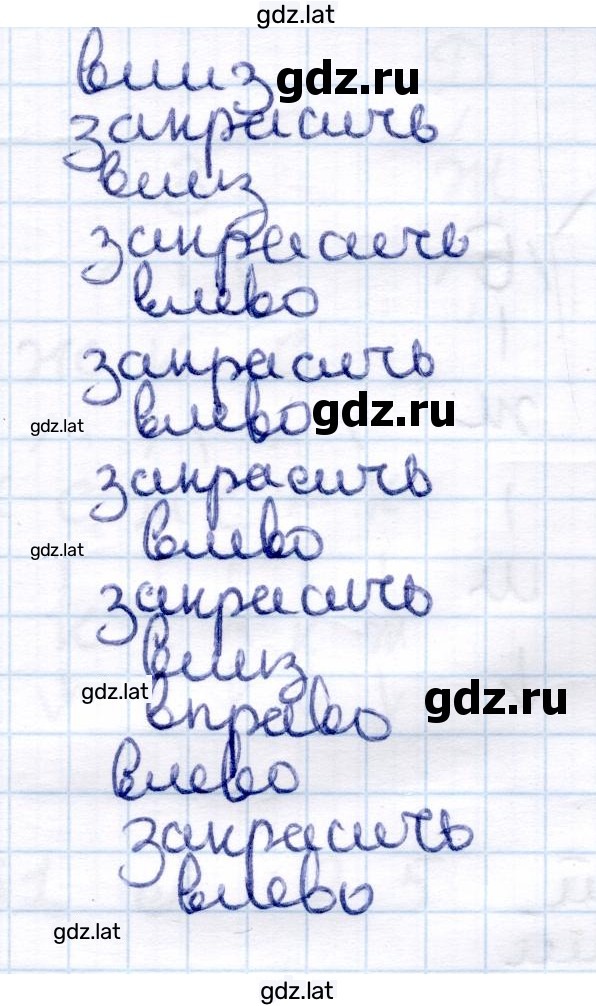 gdz.lat
вниз
gdz.ru
закрасить
вниз
закрасить
влево
закрасить
влево
gdz.ru
gdz.lat
закрасить
влево
gdz.lat
закрасить
вниз
gdz.lat
gdz.ru
вправо
влево
закрасить
влево
gdz.lat
gdz.lat